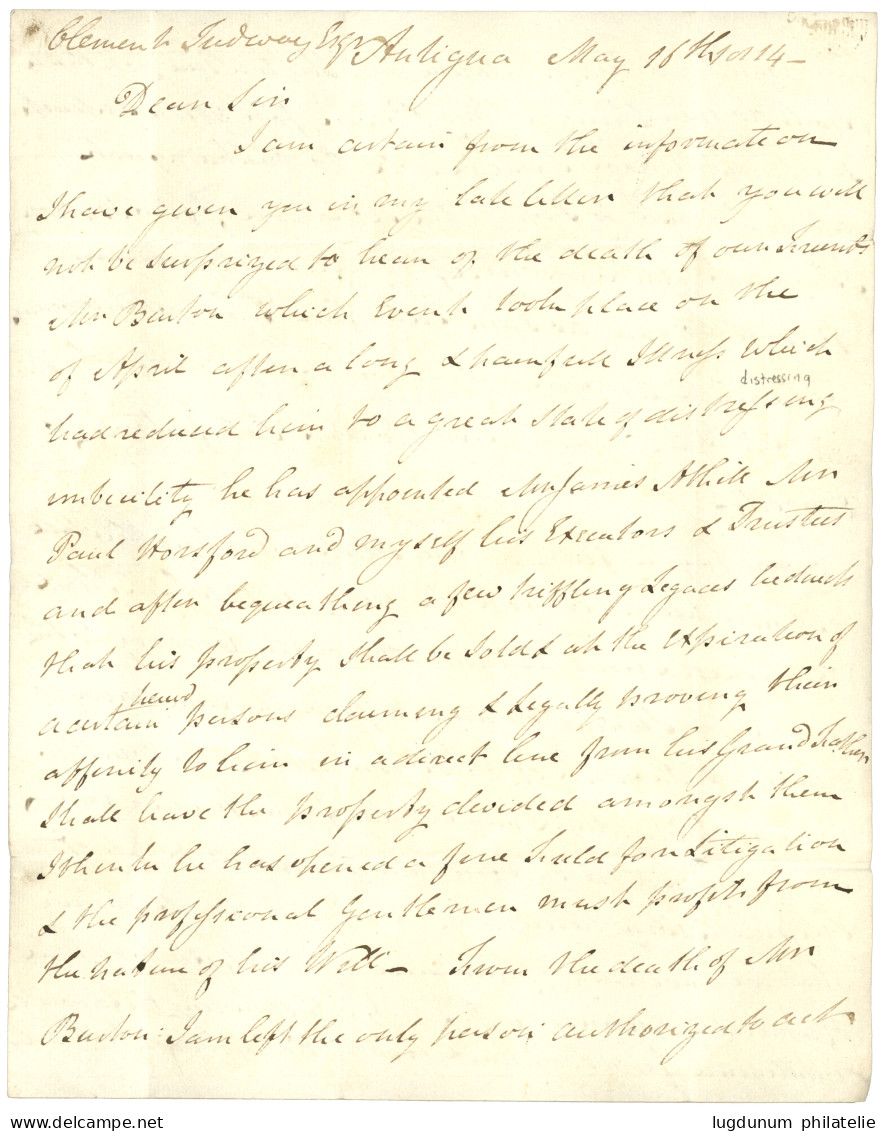 Clement Tudway Esqr Antigua May 16th 1814 –
Dear Sir
I am certain from the information
I have given you in my late letters that you will
not be surprized to hear of the death of our Friend
Mr Burton which Event took place on the
of April after a long & painfull Illness which
distressing
had reduced him to a great state of distressing
imbecility he has appointed Mr James Athill Mr
Paul Horsford and myself his Executors & Trustees
and after bequeathing a few triffling Legaces
that his property shall be Sold & at the expiration of
period
a certain persons claiming & Legally proving their
affinity to him in a direct line from his Grand Father
Shall have the property divided amongst them
I think he has opened a fine Field for Litigation
& the professional Gentlemen must profit from
the nature of his Will – From the death of Mr
Burton I am left the only person authorized to act
lugdunum philatelie
delcampe.net